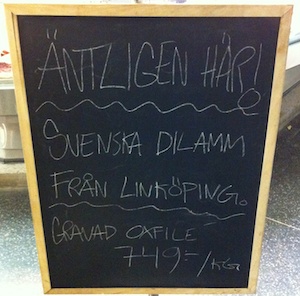 ÄNTLIGEN HÄR!
SVENSKA DILAMM
FRÅN LINKÖPING.
GRAVAD OXFILE
749:-/KG.